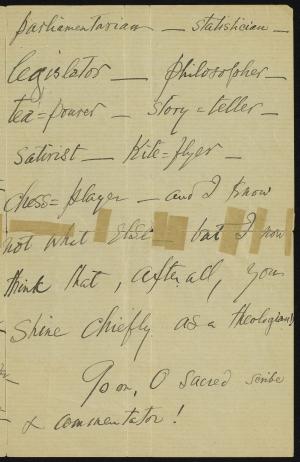 parliamentarian — statistician —
legislator — philosopher —
tea=pourer — story=teller —
satirist — Kite=flyer —
chess=player — and I know
not what else — but I now
think that, after all, you
shine chiefly as a theologian,
Go on, O sacred scribe
& commentator!